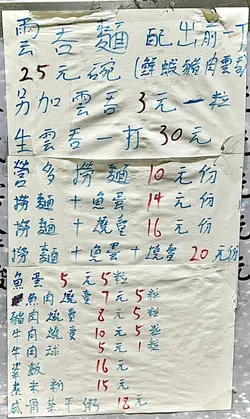 雲吞麵 配出前一丁
25元碗 (鮮蝦豬肉雲吞)
另加雲吞 3元一粒
生雲吞一打 30元
營多撈麵 10元份
撈麵+魚蛋 14元份
撈麵+燒賣 16元份
撈麵+魚蛋+燒賣 20元份
魚蛋 5元5粒
魚肉燒賣 7元5粒
豬肉燒賣 8元5粒
牛肉燒賣 10元5粒
牛肉球 5元1粒
飯 16元
米粉 15元
骨菜干粥 18元